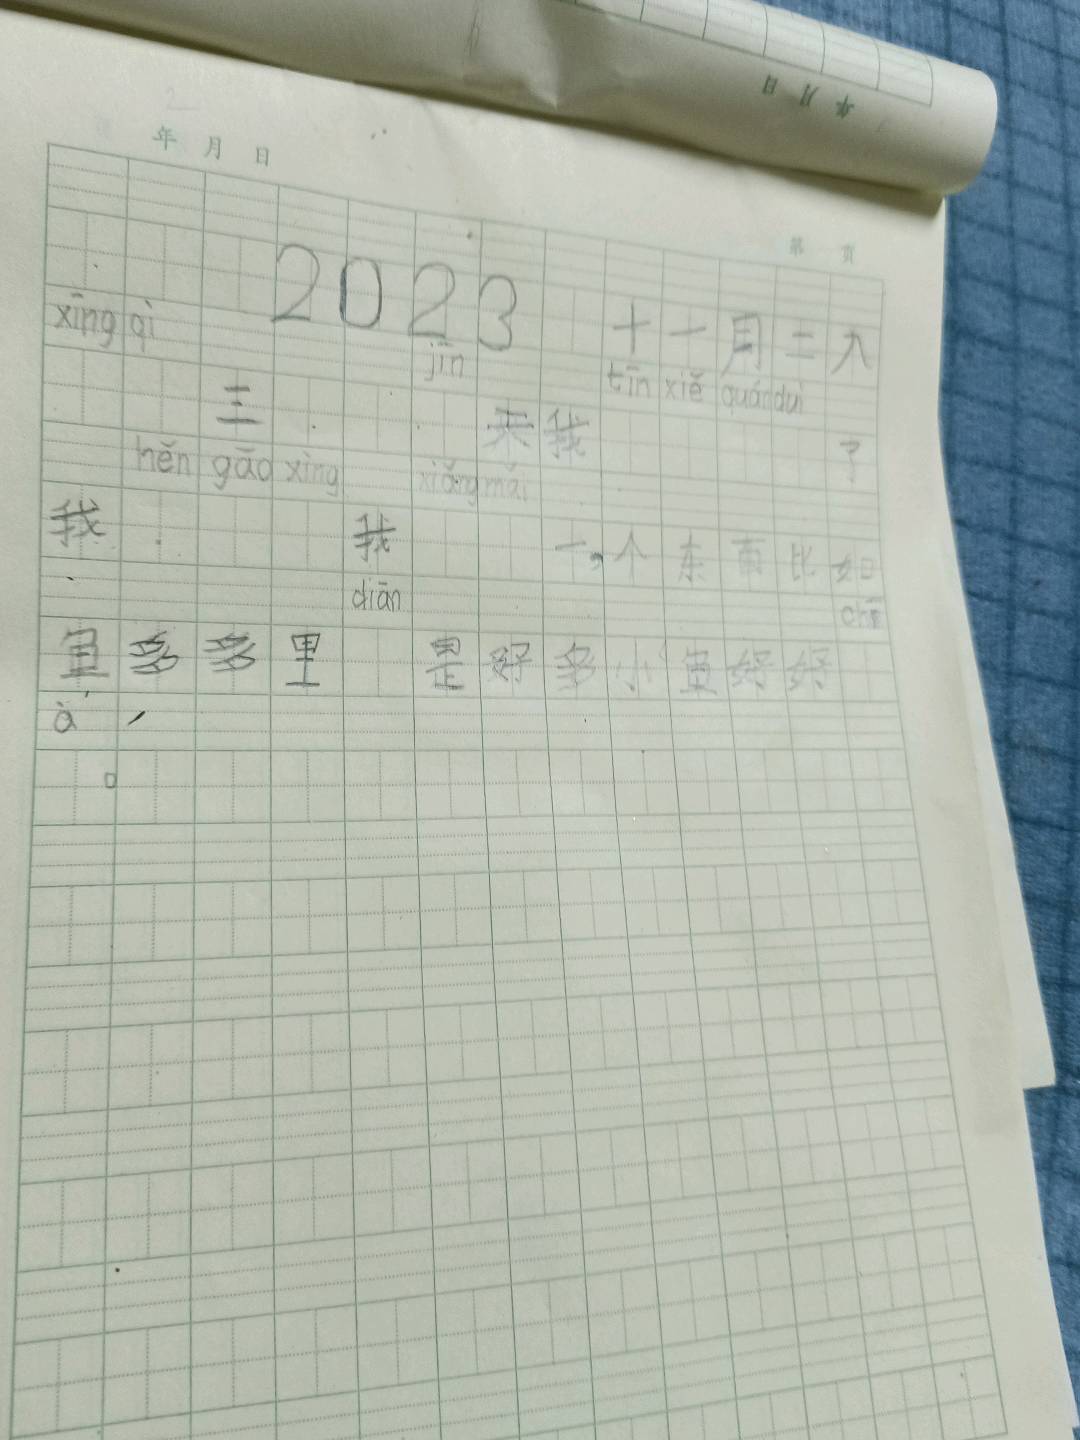 年 月 日
年 月 日
第 页
2023 十一月二八
xīng qì jīn tīn xiě quánduì
三 天我 了
hěn gāo xìng xiǎng mǎi
我 我 一个东西比如
diān chī
直多多里 是好多小直好好
à
。